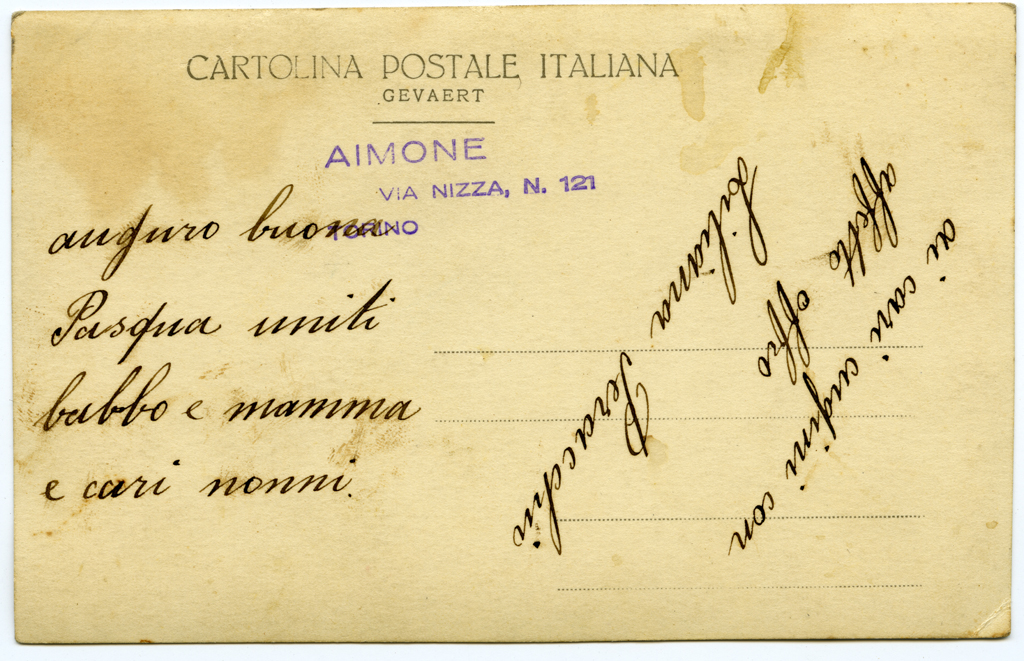 CARTOLINA POSTALE ITALIANA
GEVAERT
AIMONE
VIA NIZZA, N. 121
TORINO
auguro buona
Pasqua uniti
babbo e mamma
e cari nonni.
ai cari cugini con
affetto offro
Liliana
Peracchi